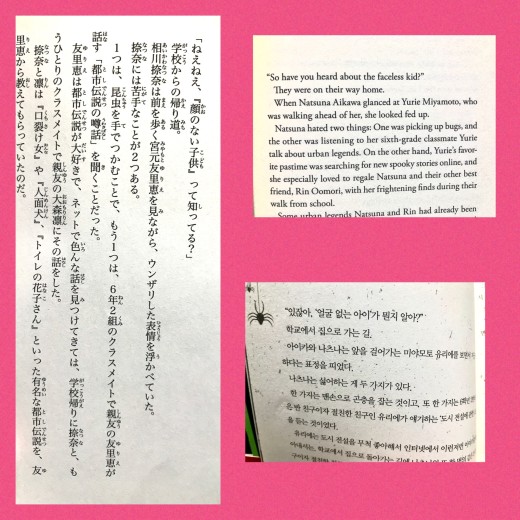 「ねえねえ、『顔のない子供』って知ってる?」
学校からの帰り道。
相川捺奈は前を歩く宮元友里恵を見ながら、ウンザリした表情を浮かべていた。
捺奈には苦手なことが2つある。
1つは、昆虫を手でつかむことで、もう1つは、6年2組のクラスメイトで親友の友里恵が
話す「都市伝説の噂話」を聞くことだった。
友里恵は都市伝説が大好きで、ネットで色んな話を見つけてきては、学校帰りに捺奈と、も
うひとりのクラスメイトで親友の大森凛にその話をした。
捺奈と凛は『口裂け女』や『人面犬』、『トイレの花子さん』といった有名な都市伝説を、友
里恵から教えてもらっていたのだ。
"So have you heard about the faceless kid?"
They were on their way home.
When Natsuna Aikawa glanced at Yurie Miyamoto, who
was walking ahead of her, she looked fed up.
Natsuna hated two things: One was picking up bugs, and
the other was listening to her sixth-grade classmate Yurie
talk about urban legends. On the other hand, Yurie's favor-
ite pastime was searching for new spooky stories online, and
she especially loved to regale Natsuna and their other best
friend, Rin Oomori, with her frightening finds during their
walk from school.
Some urban legends Natsuna and Rin had already been
"있잖아, '얼굴 없는 아이'가 뭔지 알아?"
학교에서 집으로 가는 길.
아이카와 나츠나는 앞을 걸어가는 미야모토 유리에를
하다는 표정을 띠었다.
나츠나는 싫어하는 게 두 가지가 있다.
한 가지는 맨손으로 곤충을 잡는 것이고, 또 한 가지는
은 반 친구이자 절친한 친구인 유리에가 얘기하는 '도시 전설에
을 듣는 것이었다.
유리에는 도시 전설을 무척 좋아해서 인터넷에서 이런저런
학교에서 집으로 돌아가는 길에